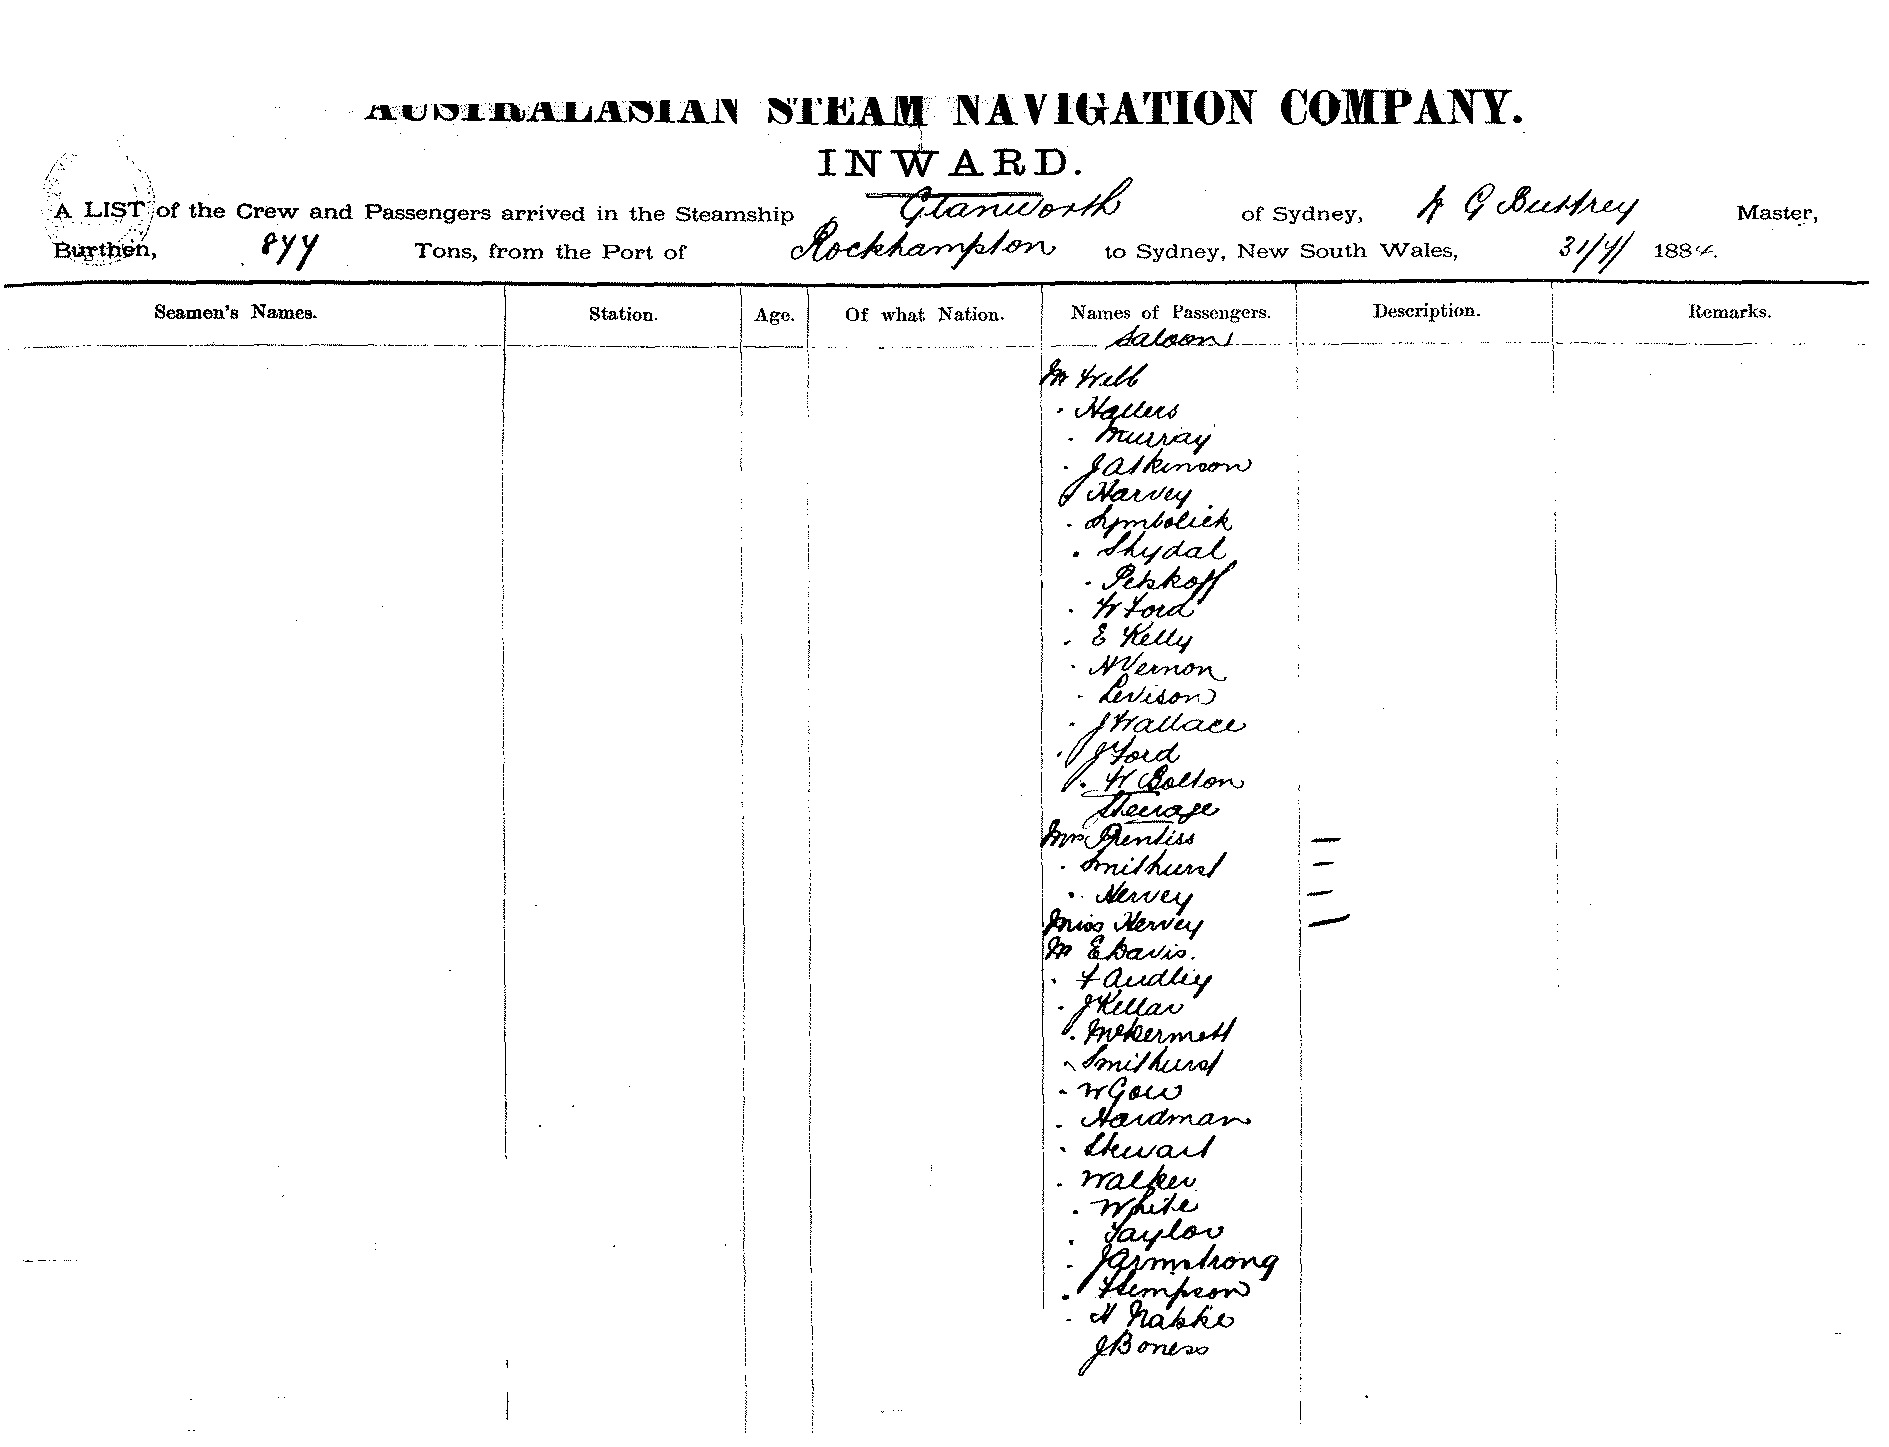 AUSTRALASIAN STEAM NAVIGATION COMPANY.
INWARD.
A LIST of the Crew and Passengers arrived in the Steamship Glanworth of Sydney, G Buttrey Master,
Burthen, 877 Tons, from the Port of Rockhampton to Sydney, New South Wales, 31/7/ 1884.
Seamen's Names. Station. Age. Of what Nation. Names of Passengers. Description. Remarks.
Saloon
Mr Webb
" Hallers
" Murray
" J Atkinson
" Harvey
" Symbolick
" Shydal
" Petskoff
" W Ford
" E Kelly
" H Vernon
" Levison
" J Wallace
" J Ford
" W Bolton
Steerage
Mrs Prentiss —
" Smithurst —
" Hervey —
Miss Hervey —
Mr E Davis.
" F Audley
" J Kellar
" McDermott
" Smithurst
" W Gow
" Hardman
" Stewart
" Walker
" White
" Taylor
" J Armstrong
" Hempson
" H Nabke
J Boness